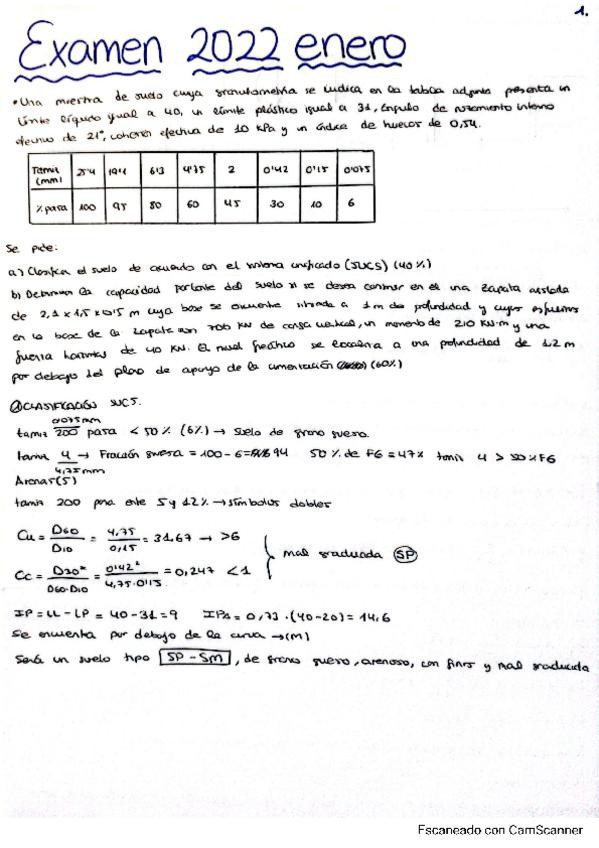 1.
Examen 2022 enero
• Una muestra de suelo cuya granulometría se indica en la tabla adjunta presenta un
límite líquido igual a 40, un límite plástico igual a 31, ángulo de rozamiento interno
efectivo de 21°, cohesión efectiva de 10 kPa y un índice de huecos de 0,54.
Tamiz (mm) 25'4 19'1 6'3 4'75 2 0'42 0'15 0'075
% pasa 100 95 80 60 45 30 10 6
Se pide:
a) Clasificar el suelo de acuerdo con el sistema unificado (SUCS) (40%)
b) Determinar la capacidad portante del suelo si se desea construir en él una zapata aislada
de 2,1 x 1,5 x 0'5 m cuya base se encuentra situada a 1m de profundidad y cuyos esfuerzos
en la base de la zapata son 700 kN de carga vertical, un momento de 210 kN·m y una
fuerza horizontal de 40 kN. El nivel freático se localiza a una profundidad de 1.2 m
por debajo del plano de apoyo de la cimentación (60%)
a) CLASIFICACIÓN SUCS.
0,075mm
tamiz 200 pasa < 50% (6%) → suelo de grano grueso.
tamiz 4 → Fracción gruesa = 100 - 6 = 94 50% de FG = 47% tamiz 4 > 50% FG
4,75mm
Arenas (S)
tamiz 200 pasa entre 5 y 12% → símbolos dobles
Cu = D60 / D10 = 4,75 / 0,15 = 31,67 → >6
mal graduada SP
Cc = D30² / D60·D10 = 0'42² / 4,75·0'15 = 0,247 < 1
IP = LL - LP = 40 - 31 = 9 IPA = 0,73 · (40-20) = 14,6
Se encuentra por debajo de la curva → (M)
Será un suelo tipo SP - SM, de grano grueso, arenoso, con finos y mal graduada
Escaneado con CamScanner